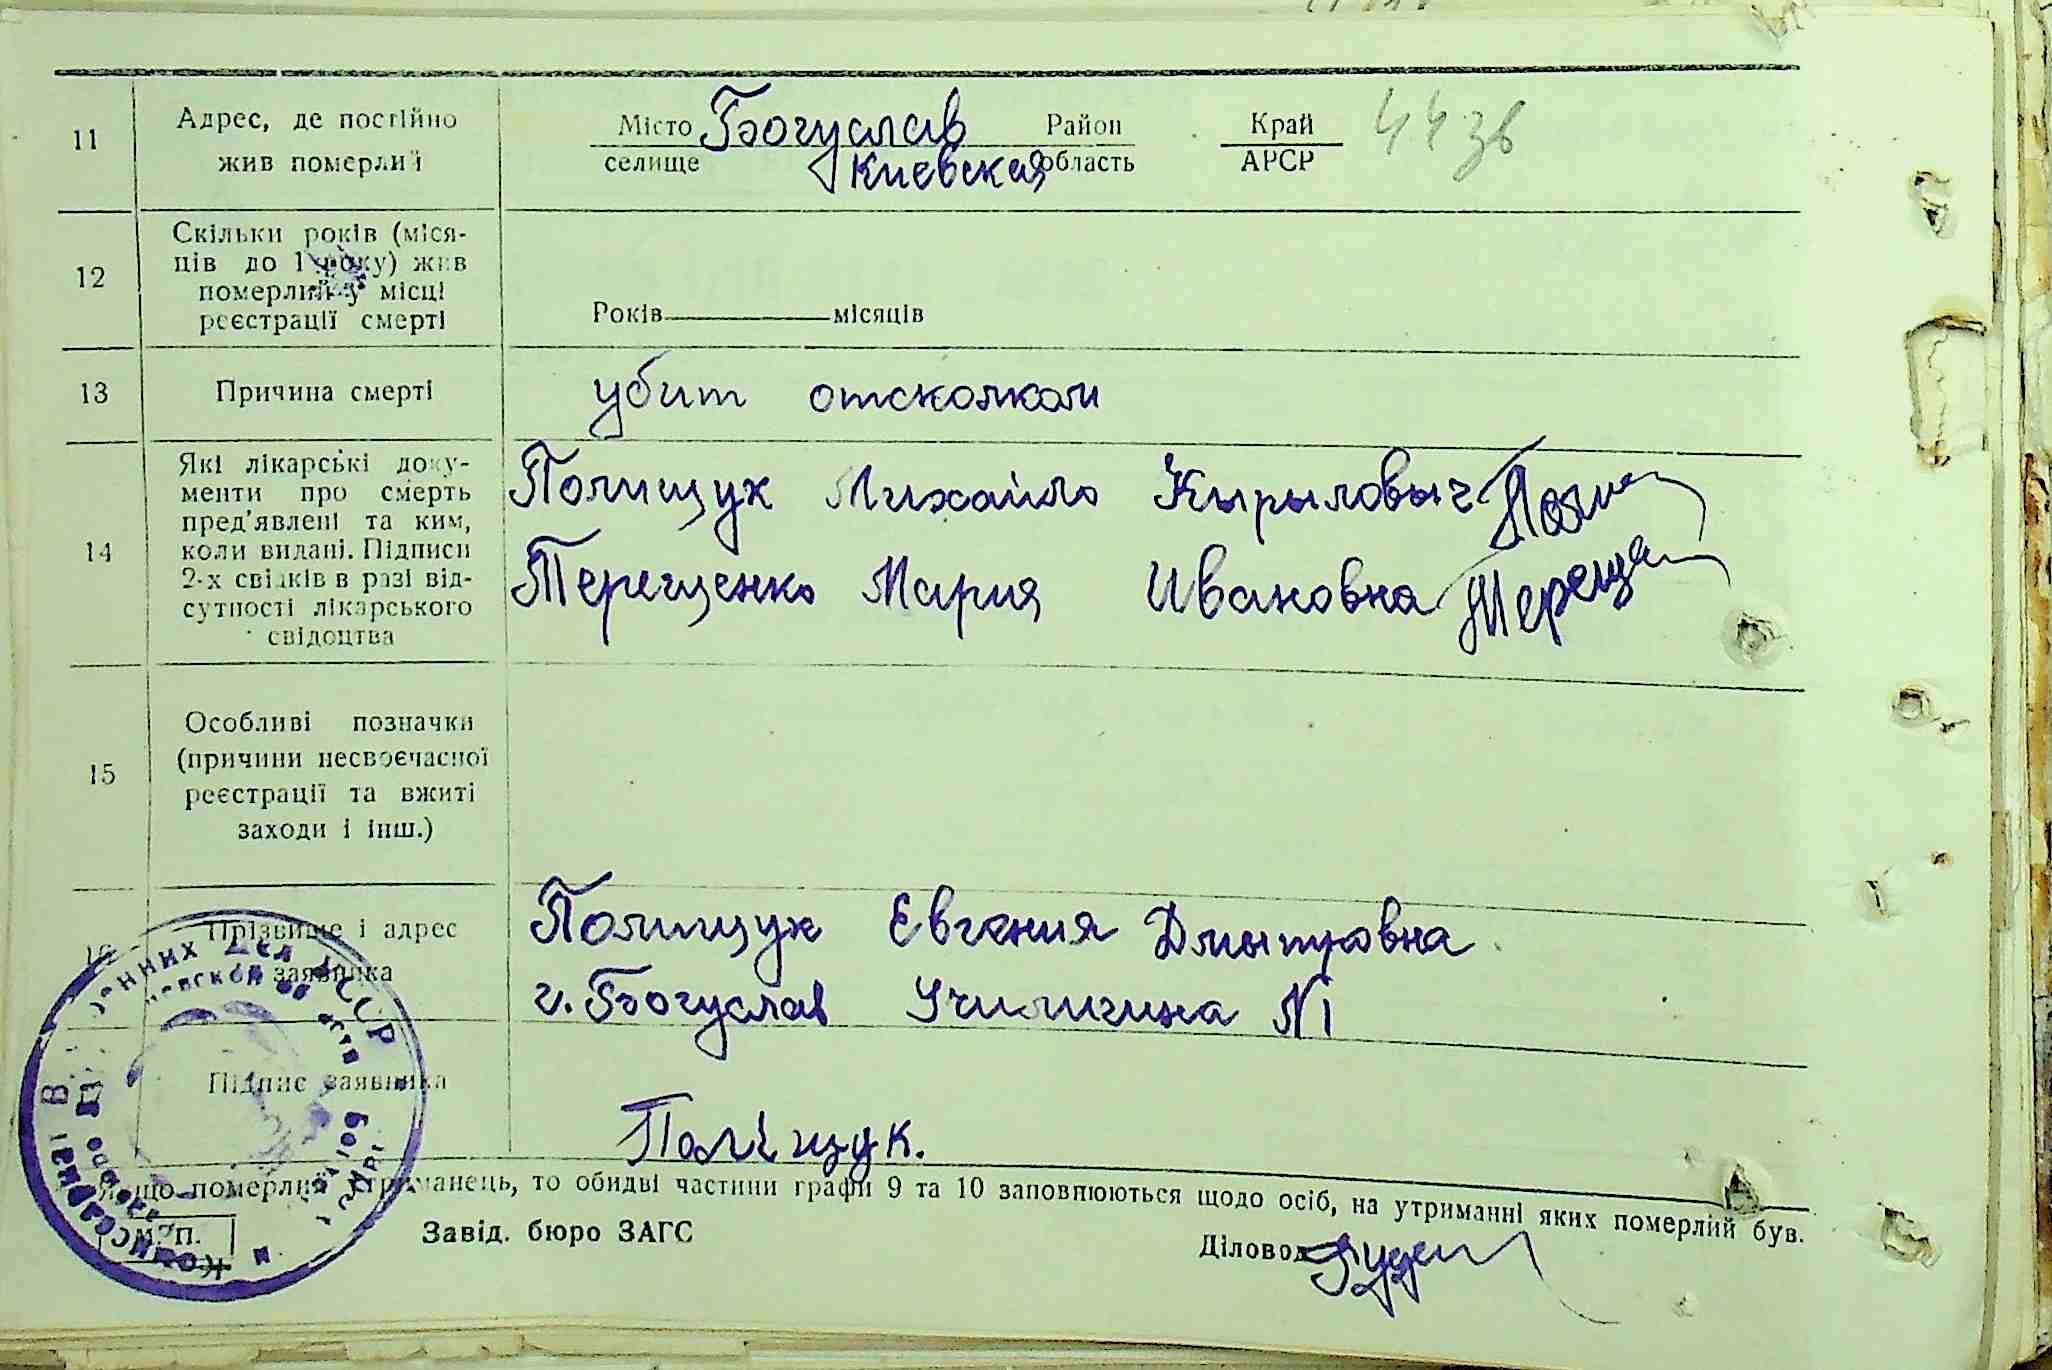 44 зв
11 Адрес, де постійно жив померлий
Місто Богуслав Район Край
селище Киевская область АРСР
12 Скільки років (міся-
ців до 1 року) жив
померлий у місці
реєстрації смерті
Років місяців
13 Причина смерті убит отсколком
14 Які лікарські доку-
менти про смерть
пред'явлені та ким,
коли видані. Підписи
2-х свідків в разі від-
сутності лікарського
свідоцтва
Полищук Михайло Кырыловыч
Терещенко Мария Ивановна Тереще
15 Особливі позначки
(причини несвоєчасної
реєстрації та вжиті
заходи і інш.)
16 Прізвище і адрес
заявника
Полищук Евгения Дмытровна
г. Богуслав Училищна N1
Підпис заявника
Поліщук.
Якщо померлий утриманець, то обидві частини графи 9 та 10 заповнюються щодо осіб, на утриманні яких померлий був.
М. П. Завід. бюро ЗАГС Діловод